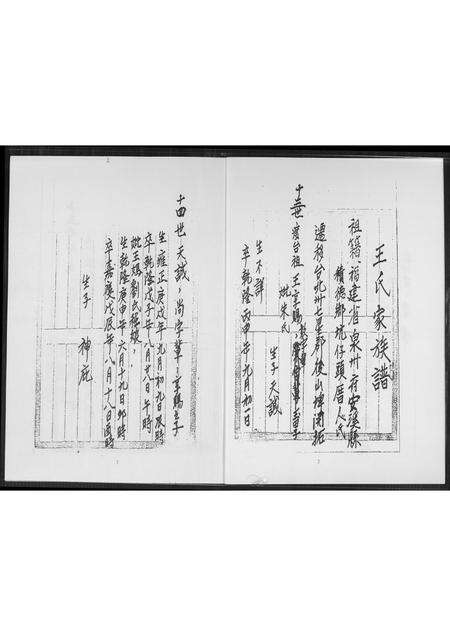 王氏家族譜
祖籍、福建省泉州府安溪縣
積德鄉坑仔頭厝人氏
遷移台北州七星郡後山埤開拓
十三世渡台祖王言賜
妣朱氏
生子天誠
生不詳
卒乾隆丙申年九月初一日
十四世天誠，尚字輩，言賜長子
生雍正庚戌年九月初九日辰時
卒乾隆戊子年八月廿九日午時
妣王媽劉氏
生乾隆庚申年六月十九日卯時
卒嘉慶戊辰年八月十八日酉時
生子 神庇